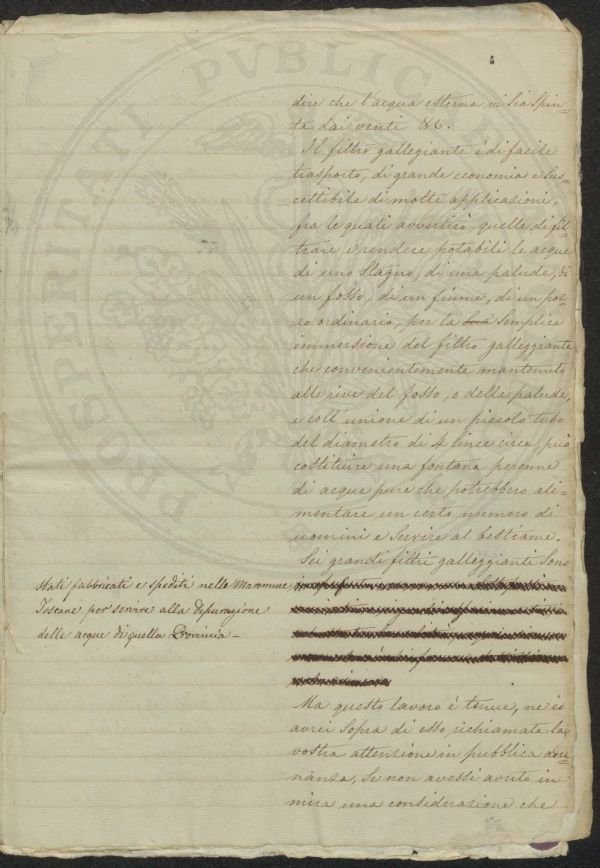 PROSPERITATI PVBLICAE
dire che l'acqua esterna in Sia Spin=
ta dai venti &6.
Il filtro gallegiante è di facile
trasporto, di grande economia e Sus=
cettibile di molte applicazioni,
fra le quali avvertirò, quelle di fil=
trare e rendere potabili le acque
di uno Stagno, di una palude, di
un fosso, di un fiume, di un poz=
zo ordinario, per la Semplice
immersione del filtro galleggiante
che convenientemente mantenuto
alle rive del fosso, o della palude,
e coll'unione di un piccolo tubo
del diametro di 4 linee circa, può
costituire una fontana perenne
di acque pure che potrebbero ali=
mentare un certo numero di
uomini e Servire al bestiame.
Sei grandi filtri galleggianti Sono
stati fabbricati e spediti nelle Maremme
Toscane per servire alla depurazione
delle acque di quella Provincia –
Ma questo lavoro è tenue, ne io
avrei Sopra di esso richiamata la
vostra attenzione in pubblica adu=
nanza, Se non avessi avuto in
mira una considerazione che